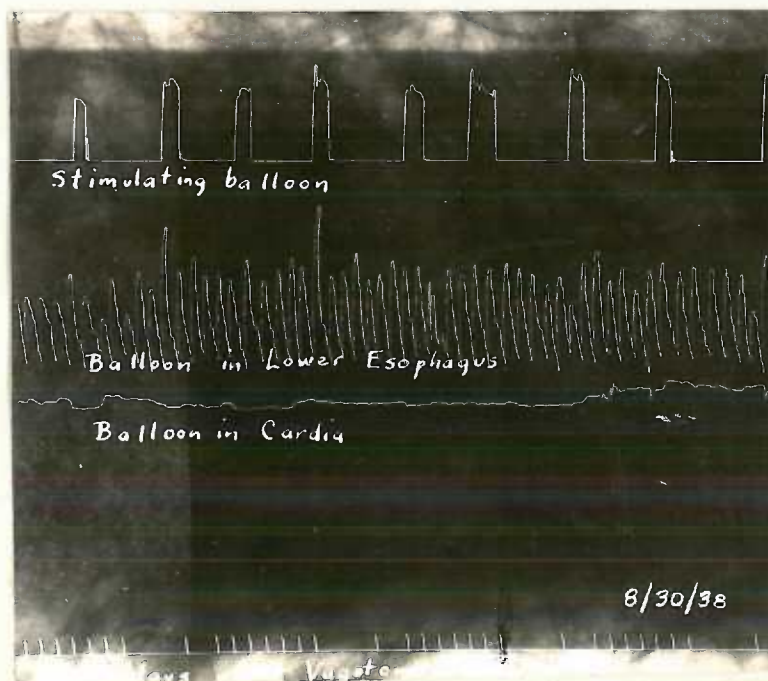 Stimulating balloon
Balloon in Lower Esophagus
Balloon in Cardia
8/30/38